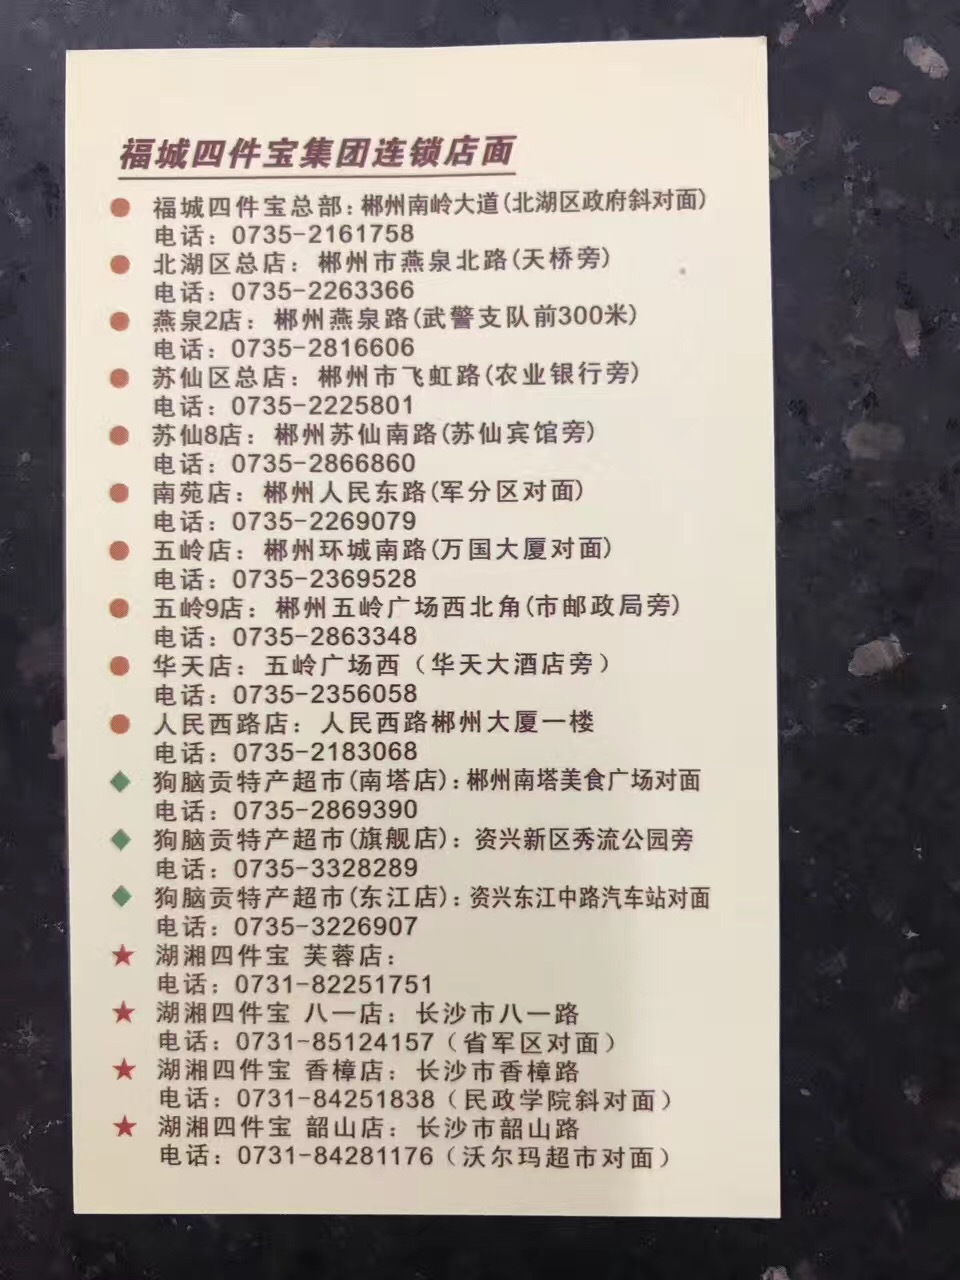 福城四件宝集团连锁店面
福城四件宝总部：郴州南岭大道(北湖区政府斜对面)
电话：0735-2161758
北湖区总店：郴州市燕泉北路(天桥旁)
电话：0735-2263366
燕泉2店：郴州燕泉路(武警支队前300米)
电话：0735-2816606
苏仙区总店：郴州市飞虹路(农业银行旁)
电话：0735-2225801
苏仙8店：郴州苏仙南路(苏仙宾馆旁)
电话：0735-2866860
南苑店：郴州人民东路(军分区对面)
电话：0735-2269079
五岭店：郴州环城南路(万国大厦对面)
电话：0735-2369528
五岭9店：郴州五岭广场西北角(市邮政局旁)
电话：0735-2863348
华天店：五岭广场西（华天大酒店旁）
电话：0735-2356058
人民西路店：人民西路郴州大厦一楼
电话：0735-2183068
狗脑贡特产超市(南塔店)：郴州南塔美食广场对面
电话：0735-2869390
狗脑贡特产超市(旗舰店)：资兴新区秀流公园旁
电话：0735-3328289
狗脑贡特产超市(东江店)：资兴东江中路汽车站对面
电话：0735-3226907
湖湘四件宝 芙蓉店：
电话：0731-82251751
湖湘四件宝 八一店：长沙市八一路
电话：0731-85124157（省军区对面）
湖湘四件宝 香樟店：长沙市香樟路
电话：0731-84251838（民政学院斜对面）
湖湘四件宝 韶山店：长沙市韶山路
电话：0731-84281176（沃尔玛超市对面）